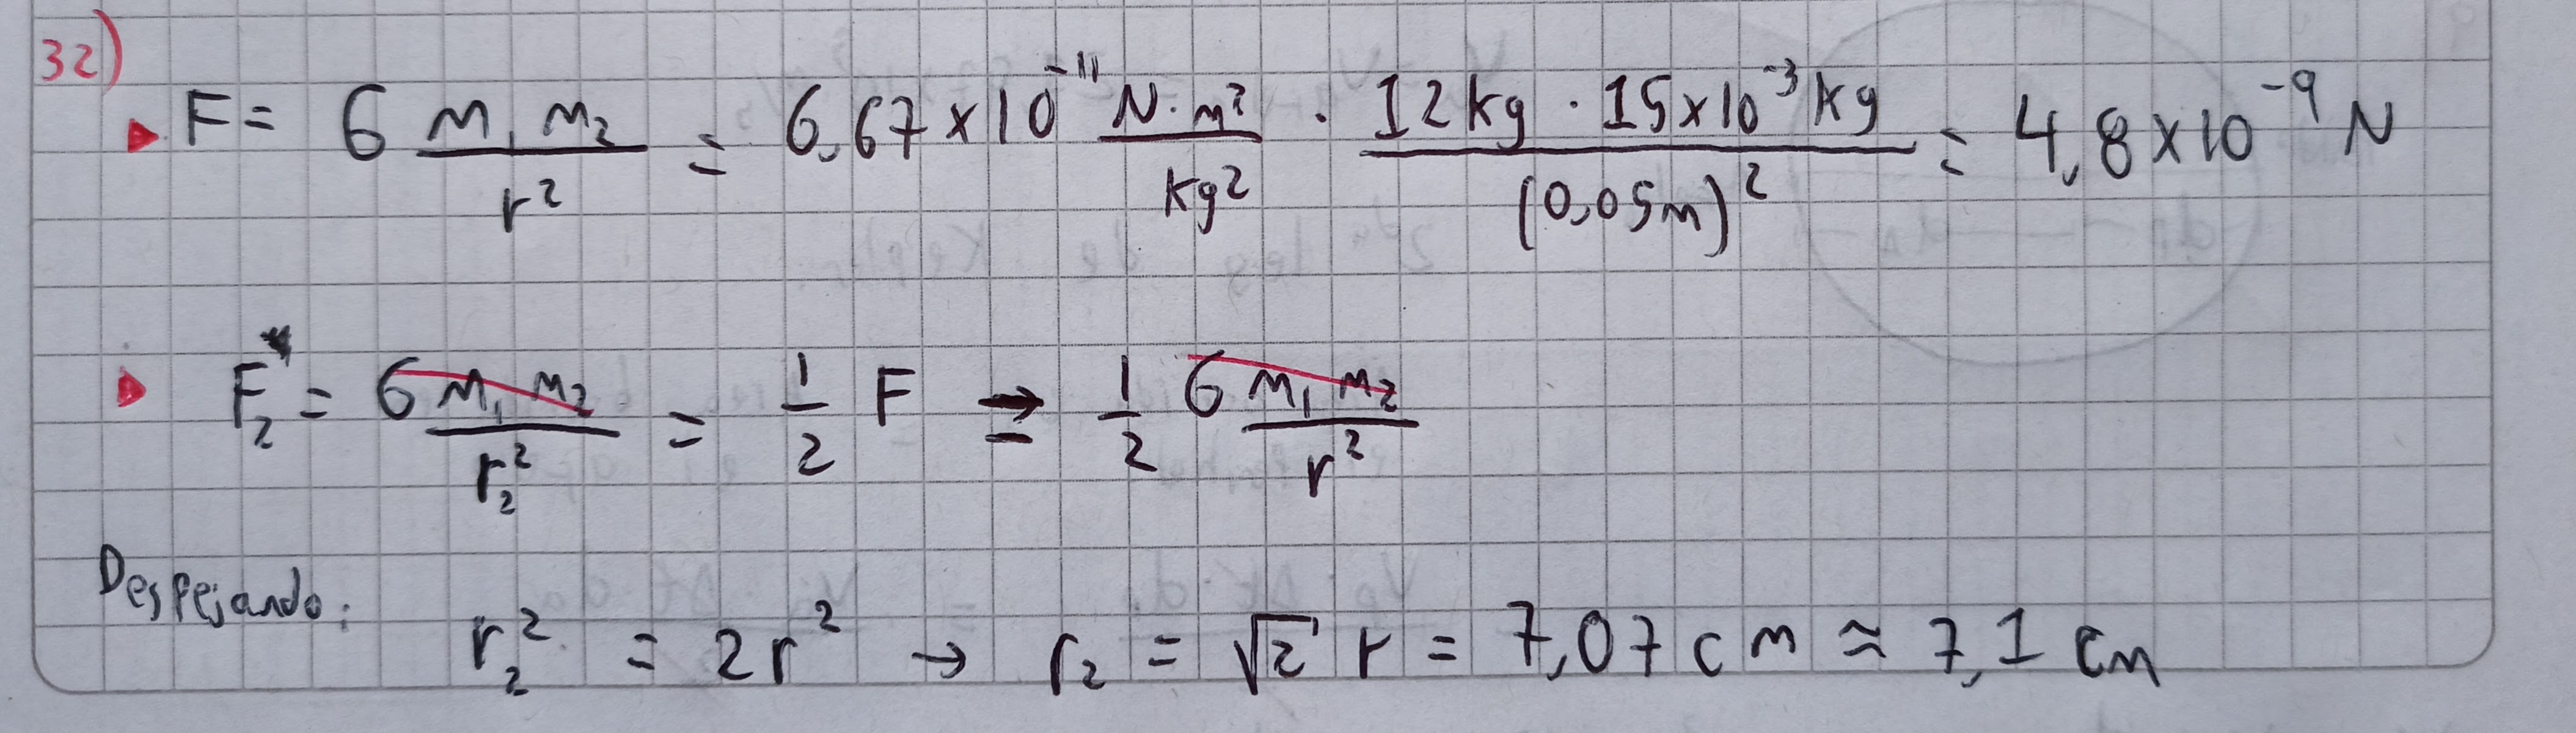 32)
F = G m₁ m₂ / r² = 6,67 x 10⁻¹¹ N·m² / kg² · 12 kg · 15 x 10⁻³ kg / (0,05 m)² = 4,8 x 10⁻⁹ N
F₂* = G m₁ m₂ / r₂² = 1/2 F ⇒ 1/2 G m₁ m₂ / r²
Despejando: r₂² = 2 r² → r₂ = √2 r = 7,07 cm ≈ 7,1 cm